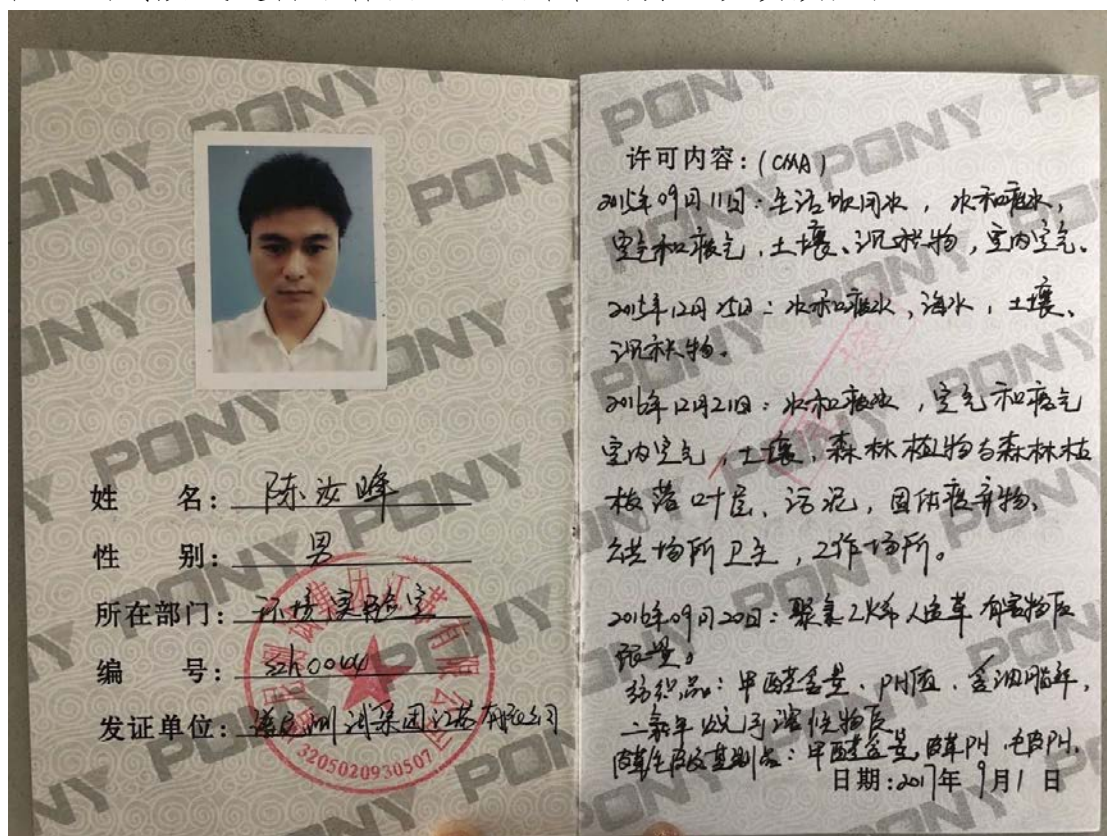 PONY
姓 名：陈汝峰
性 别：男
所在部门：环境实验室
编 号：szh0044
发证单位：谱尼测试集团江苏有限公司
谱尼测试集团江苏有限公司
3205020930507
许可内容：(CMA)
2015年09月11日：生活饮用水，水和废水，
空气和废气，土壤、沉积物，室内空气。
2015年12月25日：水和废水，海水，土壤、
沉积物。
2016年12月21日：水和废水，空气和废气
室内空气，土壤，森林植物与森林枯
枝落叶层、污泥，固体废弃物、
公共场所卫生，工作场所。
2016年09月20日：聚氯乙烯人造革有害物质
限量。
纺织品：甲醛含量、PH值、含油脂率，
二氯甲烷可溶性物质
皮革毛皮及其制品：甲醛含量，皮革PH，毛皮PH，
日期：2017年9月1日